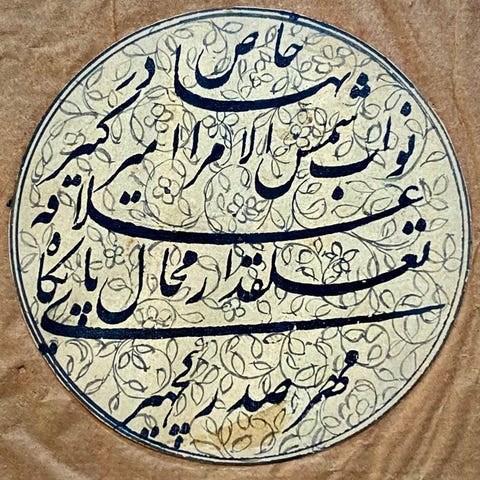 خاص
بهادر
نواب شمس الامرا امیر کبیر
علاقه
تعلقدار محال پایگاه
مهر صدر کچهری